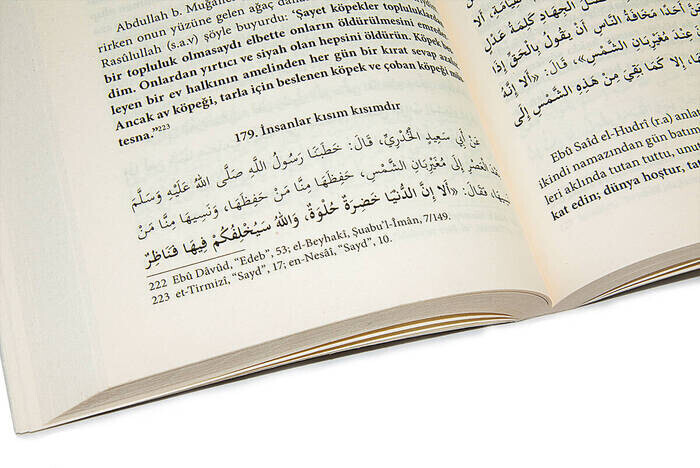 Abdullah b. Muğaffel
rirken onun yüzüne gelen ağaç da
Rasûlullah (s.a.v) şöyle buyurdu: "Şayet köpekler topluluklarda
bir topluluk olmasaydı elbette onların öldürülmesini emrede
dim. Onlardan yırtıcı ve siyah olan hepsini öldürün. Köpek
leyen bir ev halkının amelinden her gün bir kırat sevap azalı
Ancak av köpeği, tarla için beslenen köpek ve çoban köpeği mü
tesna."223
179. İnsanlar kısım kısımdır
عَنْ أَبِي سَعِيدٍ الْخُدْرِيِّ، قَالَ: خَطَبَنَا رَسُولُ اللَّهِ صَلَّى اللَّهُ عَلَيْهِ وَسَلَّمَ
الْعَصْرِ إِلَى مُغَيْرِبَانِ الشَّمْسِ، حَفِظَهَا مِنَّا مَنْ حَفِظَهَا، وَنَسِيَهَا مِنَّا مَنْ
فَقَالَ: «أَلَا إِنَّ الدُّنْيَا خَضِرَةٌ حُلْوَةٌ، وَاللَّهُ سَيُخْلِفُكُمْ فِيهَا فَنَاظِرٌ
222 Ebû Dâvûd, "Edeb", 53; el-Beyhakî, Şuabu'l-Îmân, 7/149.
223 et-Tirmizî, "Sayd", 17; en-Nesâî, "Sayd", 10.
الْجِهَادِ كَلِمَةُ عَدْلٍ
أَحَدًا مَخَافَةُ النَّاسِ أَنْ يَقُولَ بِالْحَقِّ إِذَا
عِنْدَ مُغَيْرِبَانِ الشَّمْسِ»، قَالَ: «أَلَا إِنَّهُ
إِلَّا كَمَا بَقِيَ مِنْ هَذِهِ الشَّمْسِ إِلَى
Ebû Saîd el-Hudrî (r.a) anlat
ikindi namazından gün batım
leri aklında tutan tuttu, unut
kat edin; dünya hoştur, tat